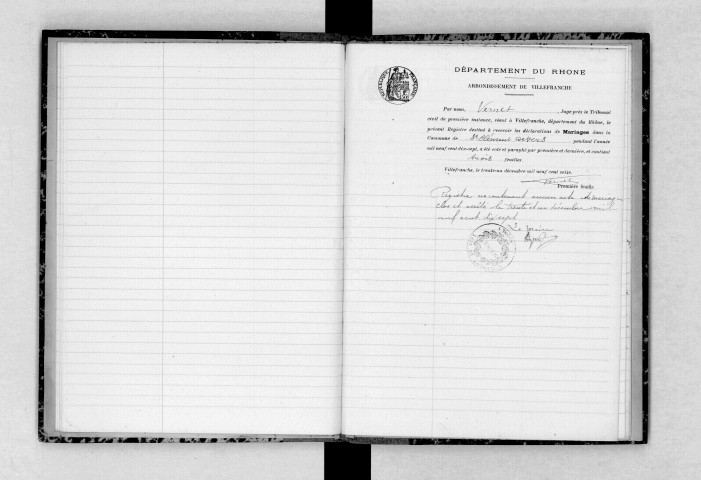 DÉPARTEMENT DU RHONE
ARRONDISSEMENT DE VILLEFRANCHE
Par nous, Vernet, Juge près le Tribunal
civil de première instance, séant à Villefranche, département du Rhône, le
présent Registre destiné à recevoir les déclarations de Mariages dans la
Commune de St Clément pendant l'année
mil neuf cent dix-sept, a été coté et paraphé par première et dernière, et contient
trois feuilles
Villefranche, le trente-un décembre mil neuf cent seize.
Vernet
Première feuille
Registre ne contenant aucun acte de mariage
clos et arrêté le trente et un décembre mil
neuf cent dix sept
Le maire